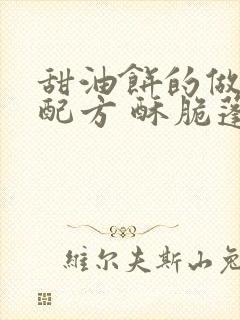 甜油餅的做
配方 酥脆蓬
維尔夫斯山兔